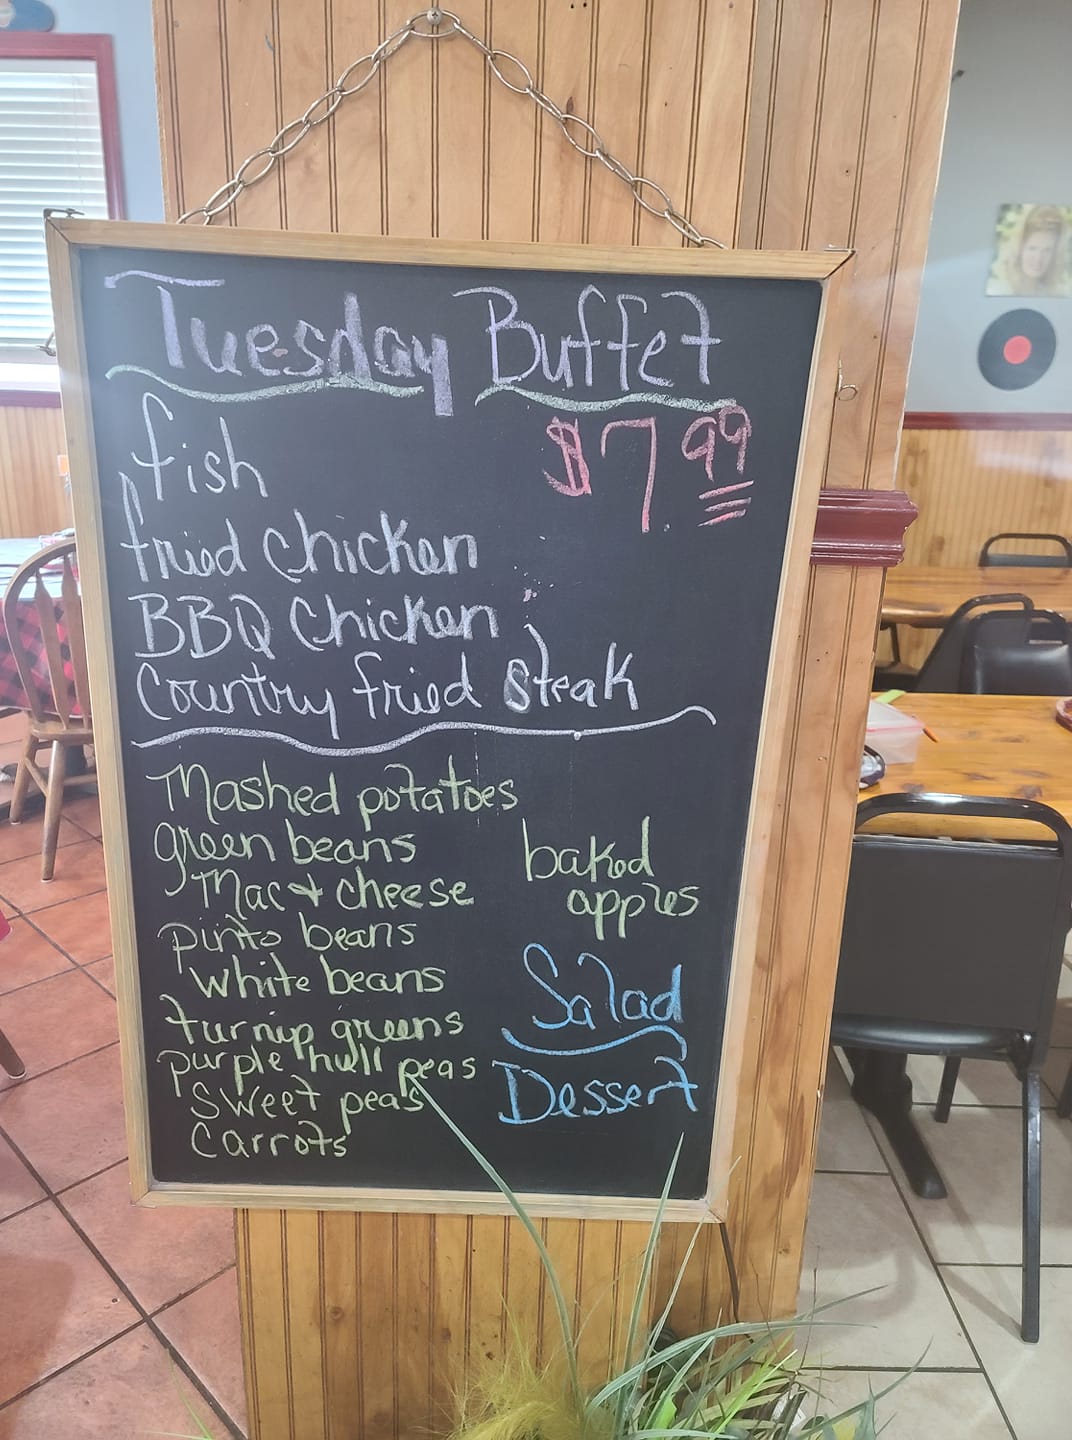 Tuesday Buffet
$7.99
fish
fried chicken
BBQ Chicken
Country fried steak
Mashed potatoes
green beans
Mac & cheese
pinto beans
white beans
turnip greens
purple hull peas
Sweet peas
Carrots
baked
apples
Salad
Dessert